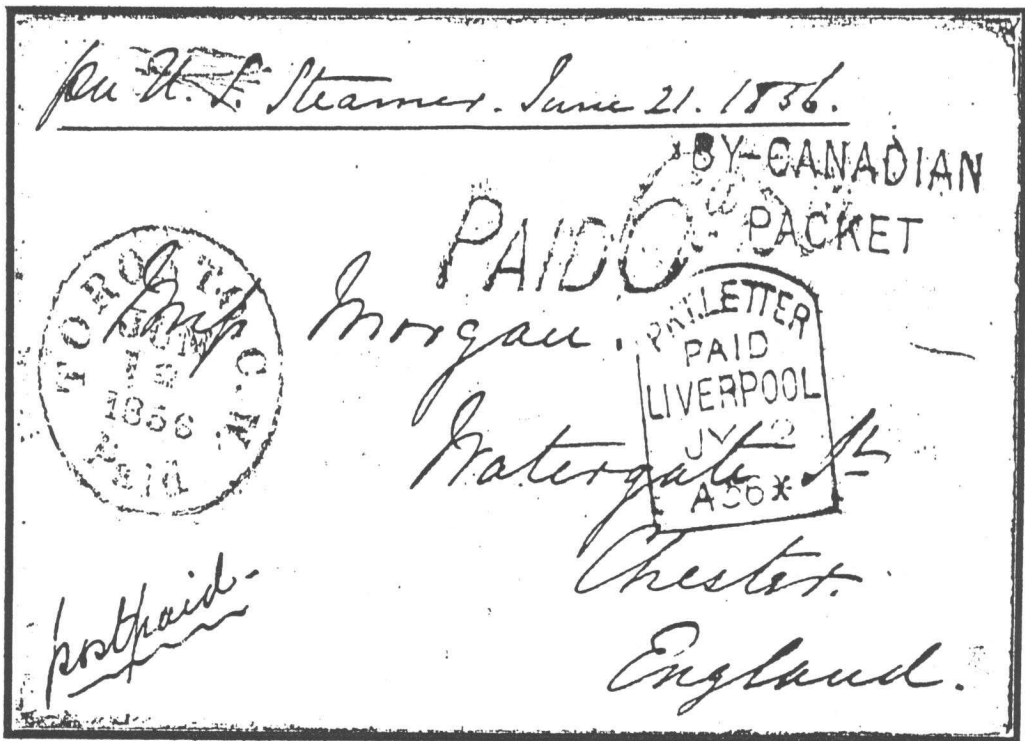 per U. S. Steamer. June 21. 1856.
BY-CANADIAN
PACKET
PAID
TORONTO, C.W.
JUN
1856
Paid
Miss Morgan.
PKT. LETTER
PAID
LIVERPOOL
JY 2
A56*
Watergate St
Chester.
England.
postpaid.